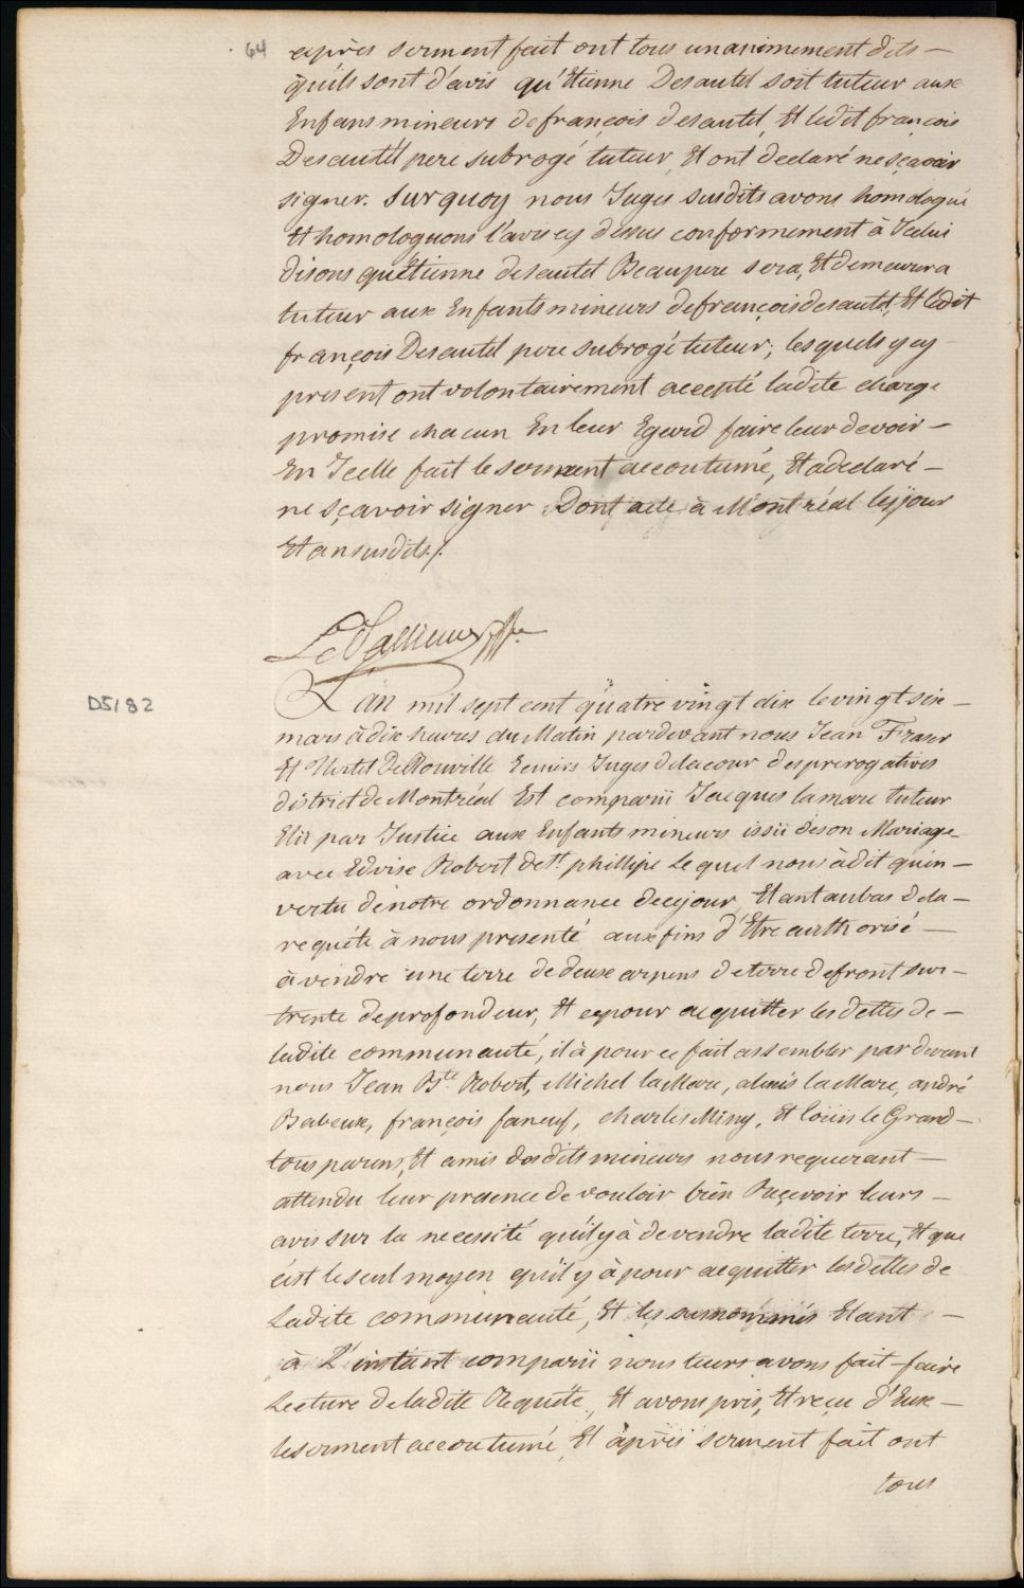 64
après serment fait ont tous unanimement dits —
quils sont d'avis qu'Etienne Desautel soit tuteur aux
Enfans mineurs de françois desautel, Et ledit françois
Desautél pere subrogé tuteur, Et ont declaré ne sçavoir
signer. Sur quoy nous Juges susdits avons homologué
Et homologuons l'avis cy dessus conformement à Icelui
disons qu'Etienne desautel Beaupere sera, Et demeurera
tuteur aux Enfants mineurs de françois desautel, Et ledit
françois Desautel pere subrogé tuteur; lesquels y cy
present ont volontairement accepté ladite charge
promise chacun En leur Egard faire leur devoir —
En Icelle fait le serment accoutumé, Et a declaré —
ne sçavoir signer Dont acte à Montréal les jour
Et an susdits /.
D5/82
L'an mil sept cent quatre vingt dix le vingt six —
mars à dix heures du Matin pardevant nous Jean Fraser
Et Hertel DeRouville Ecuiers Juges de la cour des prerogatives
district de Montréal Est comparü Jacques lamare tuteur
Elü par Justice aux Enfants mineurs issü de son Mariage
avec Edvise Robert de St. phillipe Lequel nous à dit qu'en —
vertu de notre ordonnance de ce jour, Etant au bas de la —
requéte à nous presenté aux fins d'Etre authorisé —
à vendre une terre de deux arpens de terre de front sur —
trente de profondeur, Et ce pour acquitter les dettes de —
ladite communauté, il à pour ce fait assembler par devant
nous Jean Bte. Robert, Michel laMare, alexis laMare, andré
Babeux, françois faneuf, charles Miny, Et loüis le Grand —
tous parens, Et amis desdits mineurs nous requerant —
attendu leur presence de vouloir bien Reçevoir leurs —
avis sur la necessité qu'il y à de vendre ladite terre, Et que
c'est le seul moyen qu'il y à pour acquitter les dettes de
Ladite communauté, Et les susnommés Etant —
à L'instant comparü nous leurs avons fait faire
Lecture de ladite Requéte, Et avons pris, Et reçu d'Eux —
le serment accoutumé, Et après serment fait ont
tous